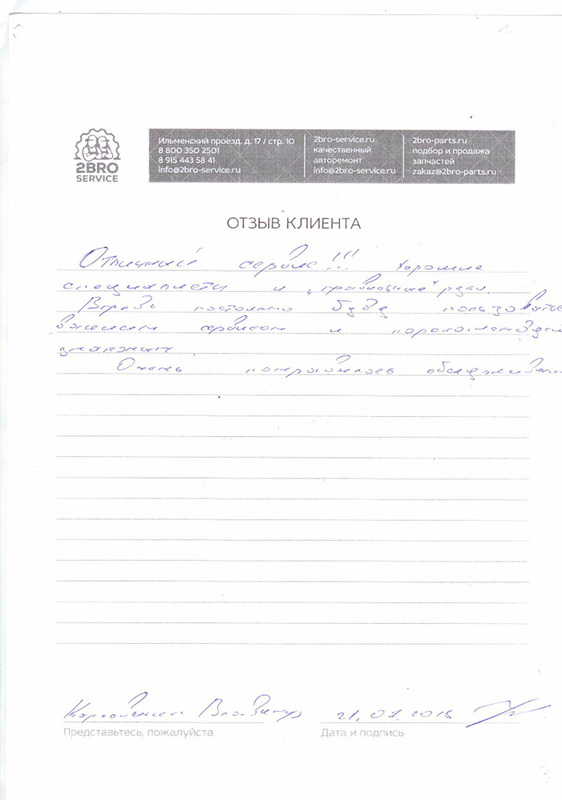 2BRO
SERVICE
Ильменский проезд, д. 17 / стр. 10
8 800 350 2501
8 915 443 58 41
info@2bro-service.ru
2bro-service.ru
качественный
авторемонт
info@2bro-service.ru
2bro-parts.ru
подбор и продажа
запчастей
zakaz@2bro-parts.ru
ОТЗЫВ КЛИЕНТА
Отличный сервис!!! Хорошие
специалисты и "правильные" руки.
Впредь постоянно буду
вашим сервисом и
знакомым.
Очень понравилось
Владимир 21.01.2016
Представьтесь, пожалуйста Дата и подпись